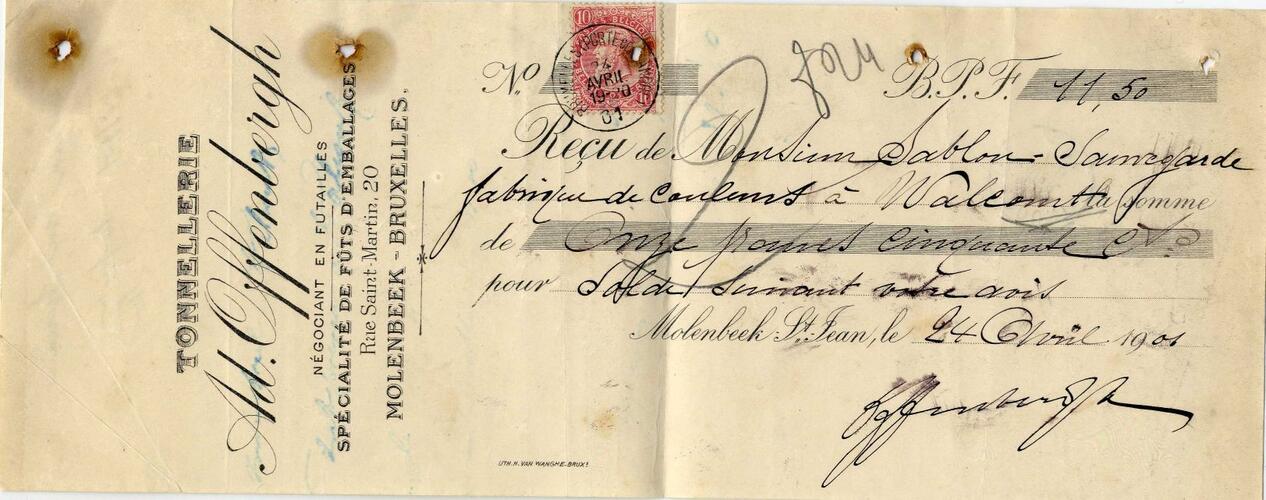 TONNELLERIE
Ad. Offenbergh
NÉGOCIANT EN FUTAILLES
SPÉCIALITÉ DE FÛTS D'EMBALLAGES
Rue Saint-Martin, 20
MOLENBEEK - BRUXELLES.
10
AVRIL
19-20
01
N.º
B.P.F. 11,50
Reçu de Monsieur Sablon-Sauvegarde
fabrique de couleurs à Walcourt la somme
de Onze francs cinquante Cs
pour Solde suivant votre avis
Molenbeek St. Jean, le 24 Avril 1901
Offenbergh
LITH. H. VAN WANGHE-BRUX!